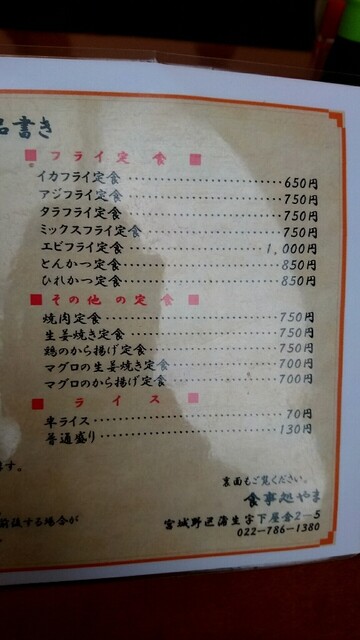 品書き
■フライ定食■
イカフライ定食 650円
アジフライ定食 750円
タラフライ定食 750円
ミックスフライ定食 750円
エビフライ定食 1,000円
とんかつ定食 850円
ひれかつ定食 850円
■その他の定食■
焼肉定食 750円
生姜焼き定食 750円
鶏のから揚げ定食 750円
マグロの生姜焼き定食 700円
マグロのから揚げ定食 700円
■ライス■
半ライス 70円
普通盛り 130円
ます。
裏面もご覧ください。
食事処やま
前後する場合が
宮城野区蒲生字下屋倉2-5
022-786-1380